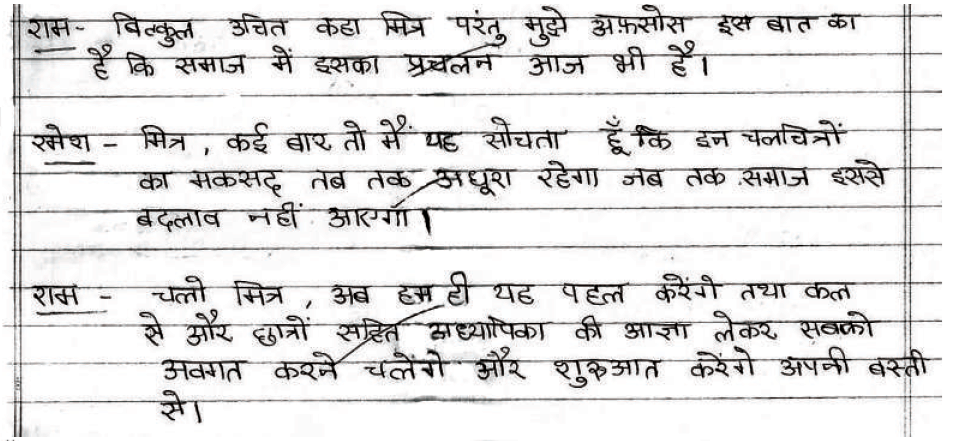 राम- बिल्कुल उचित कहा मित्र परंतु मुझे अफ़सोस इस बात का
है कि समाज में इसका प्रचलन आज भी है।
रमेश - मित्र, कई बार तो मैं यह सोचता हूँ कि इन चलचित्रों
का मकसद तब तक अधूरा रहेगा जब तक समाज इससे
बदलाव नहीं आएगा।
राम - चलो मित्र, अब हम ही यह पहल करेंगे तथा कल
से और छात्रों सहित अध्यापिका की आज्ञा लेकर सबको
अवगत करने चलेंगे और शुरुआत करेंगे अपनी बस्ती
से।